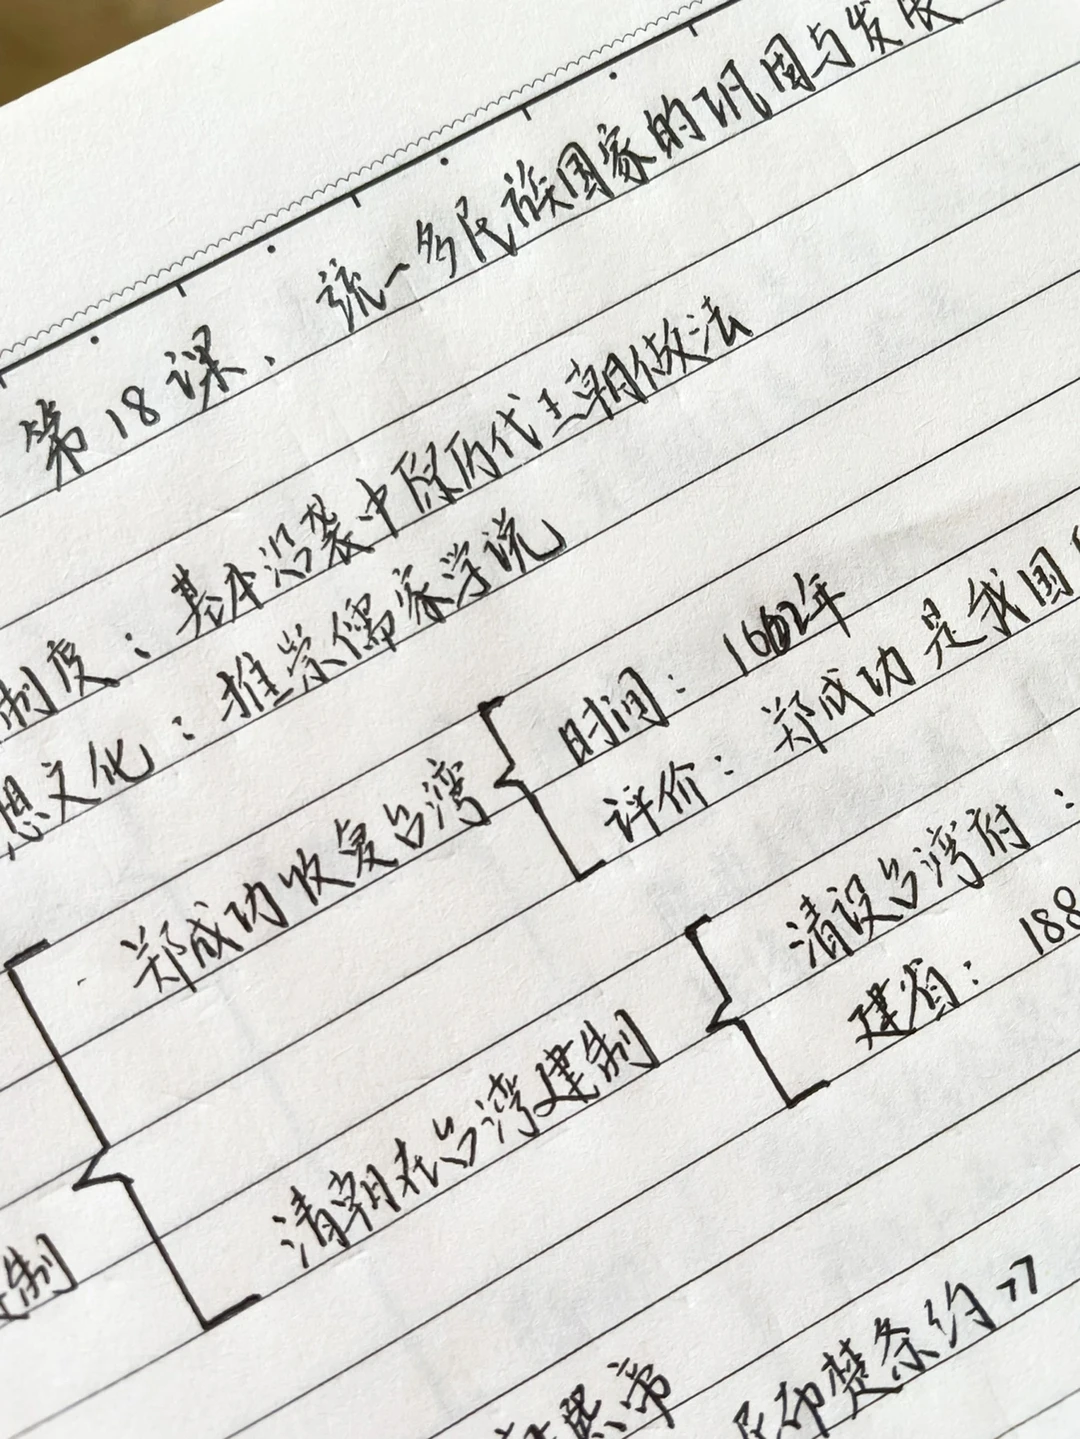 第18课、 统一多民族国家的巩固与发展
制度：基本沿袭中原历代王朝做法
思文化：推崇儒家学说
郑成功收复台湾
时间：1662年
评价：郑成功是我国
清朝在台湾建制
清设台湾府：
建省：188
制
熙帝
布楚条约》